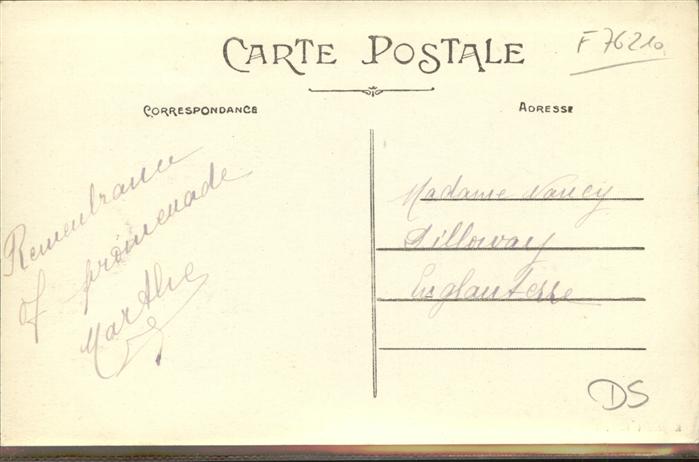 CARTE POSTALE
F 76210
CORRESPONDANCE
ADRESSE
Remembrance
of promenade
Marthe
Madame Nancy
Dilloway
Englanterre
DS